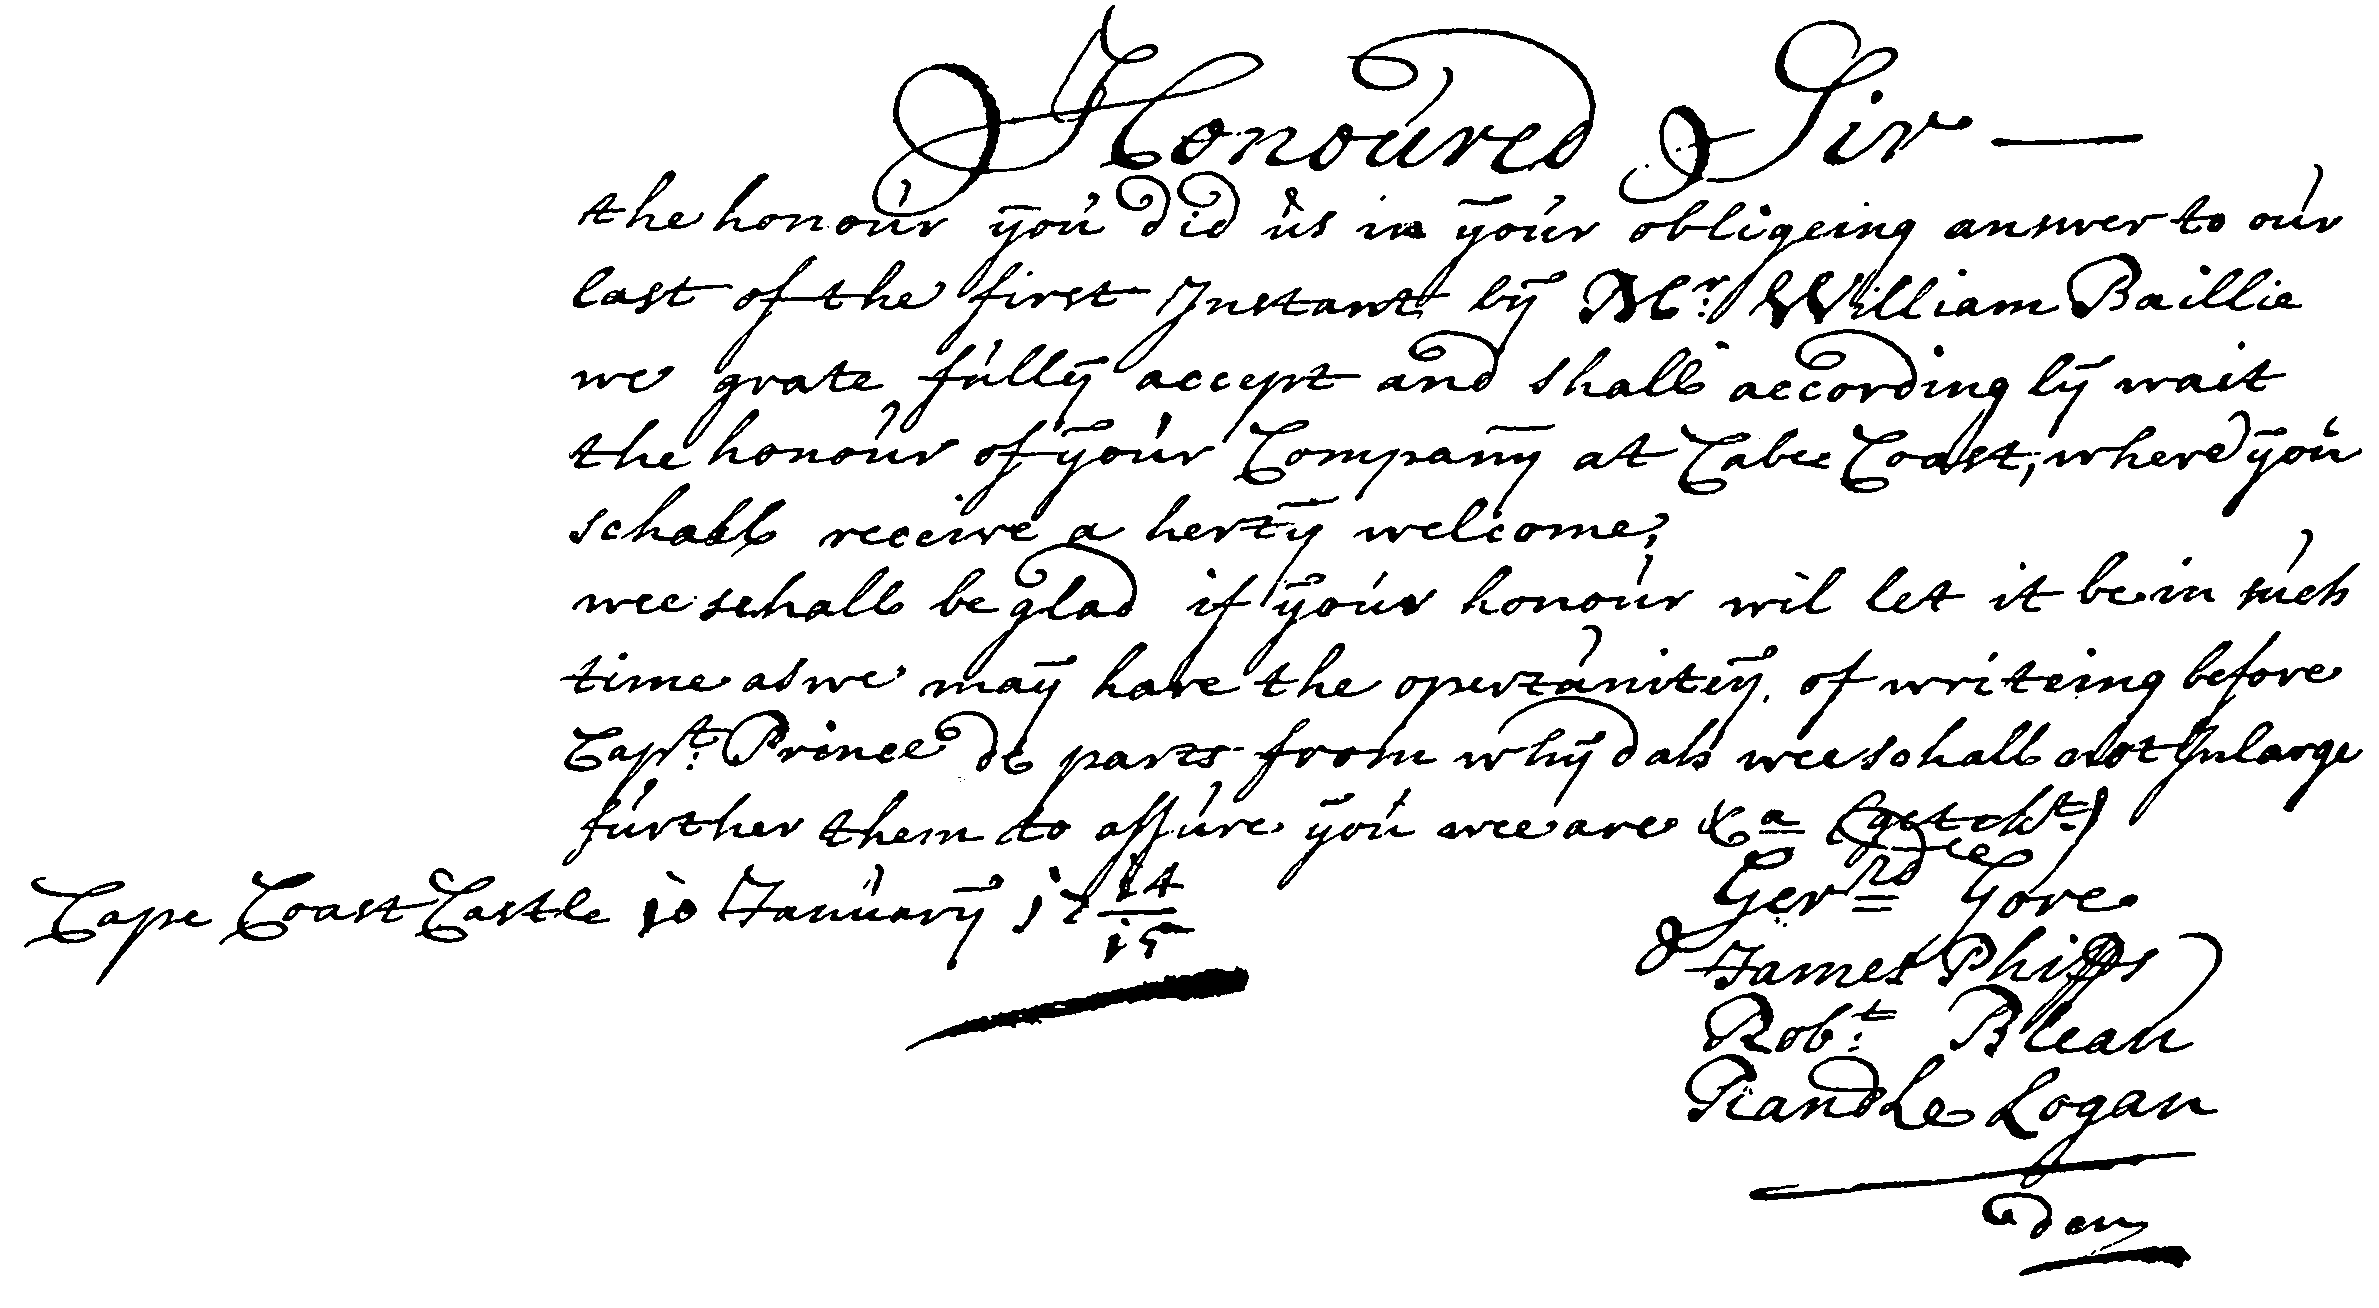 Honoured Sir —
the honour you did us in your obligeing answer to our
last of the first Instant by Mr: William Baillie
we grate fully accept and shall according ly wait
the honour of your Company at Cabee Coast, where you
schall receive a herty welcome;
wee schall be glad if your honour wil let it be in such
time as we may have the opertunitey, of writeing before
Capt: Prince de parts from whydah wee schall not Inlarge
further them to assure you wee are &a (getekt:)
Gerrd Gore
Cape Coast Castle 10 January 17 14/15
& James Phipps
Robt: Blean
Randle Logan